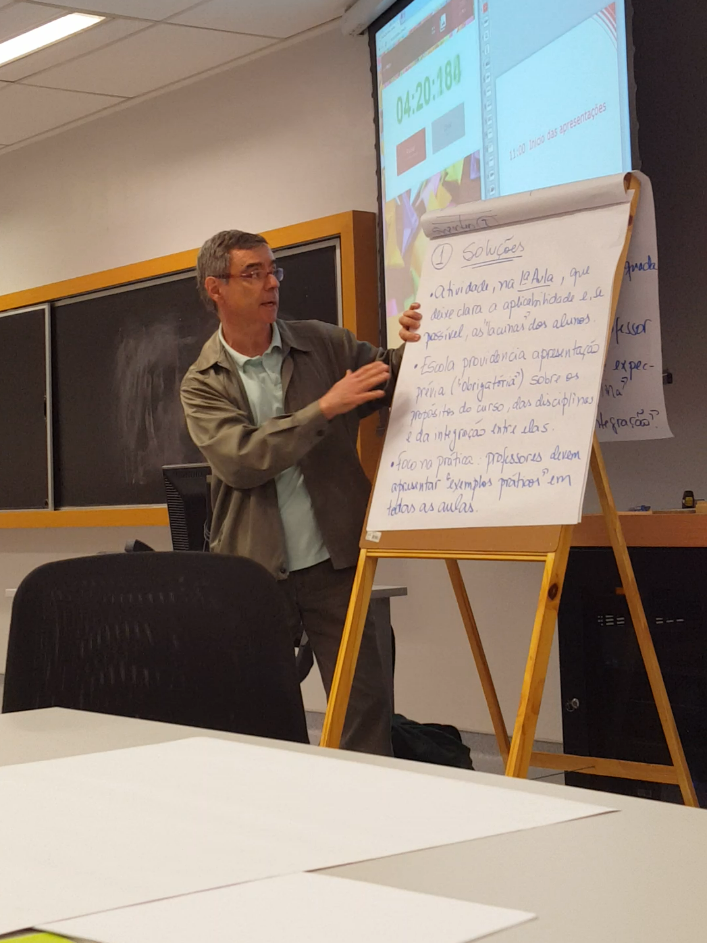 04:20:184
11:00 Início das apresentações
① SOLUÇÕES
• Atividade, na 1ª Aula, que
deixe clara a aplicabilidade e, se
possível, as "lacunas" dos alunos.
• Escola providencia apresentação
prévia ("obrigatória") sobre os
propósitos do curso, das disciplinas
e da integração entre elas.
• Foco na prática: professores devem
apresentar "exemplos práticos" em
todas as aulas.